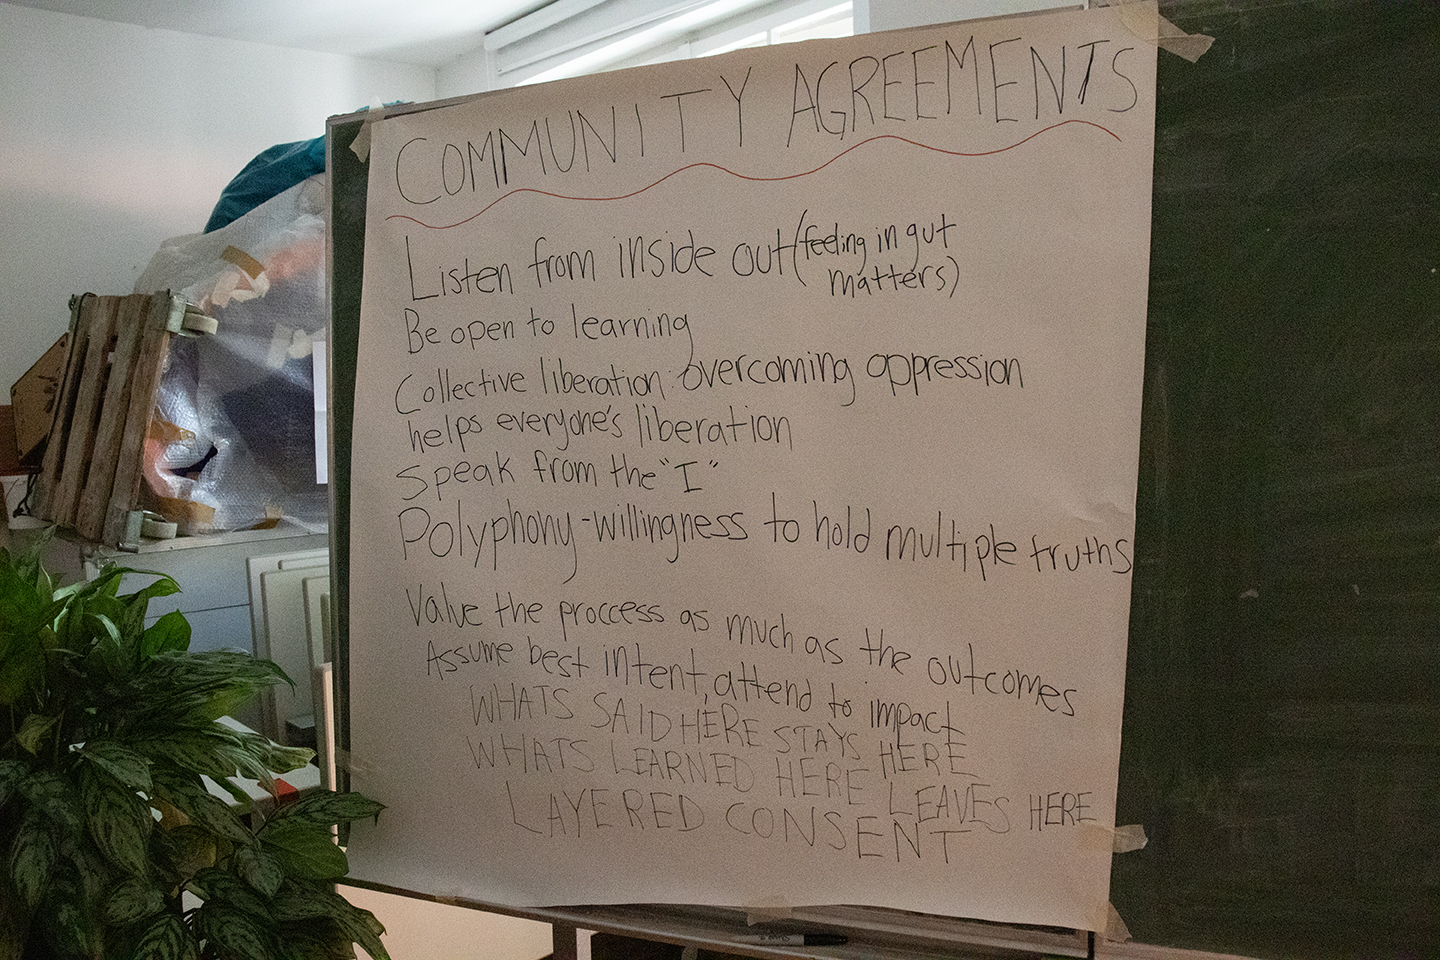 COMMUNITY AGREEMENTS
Listen from inside out (feeling in gut
matters)
Be open to learning
Collective liberation: overcoming oppression
helps everyone's liberation
Speak from the "I"
Polyphony - willingness to hold multiple truths
Value the proccess as much as the outcomes
Assume best intent, attend to impact
WHATS SAID HERE STAYS HERE
WHATS LEARNED HERE LEAVES HERE
LAYERED CONSENT